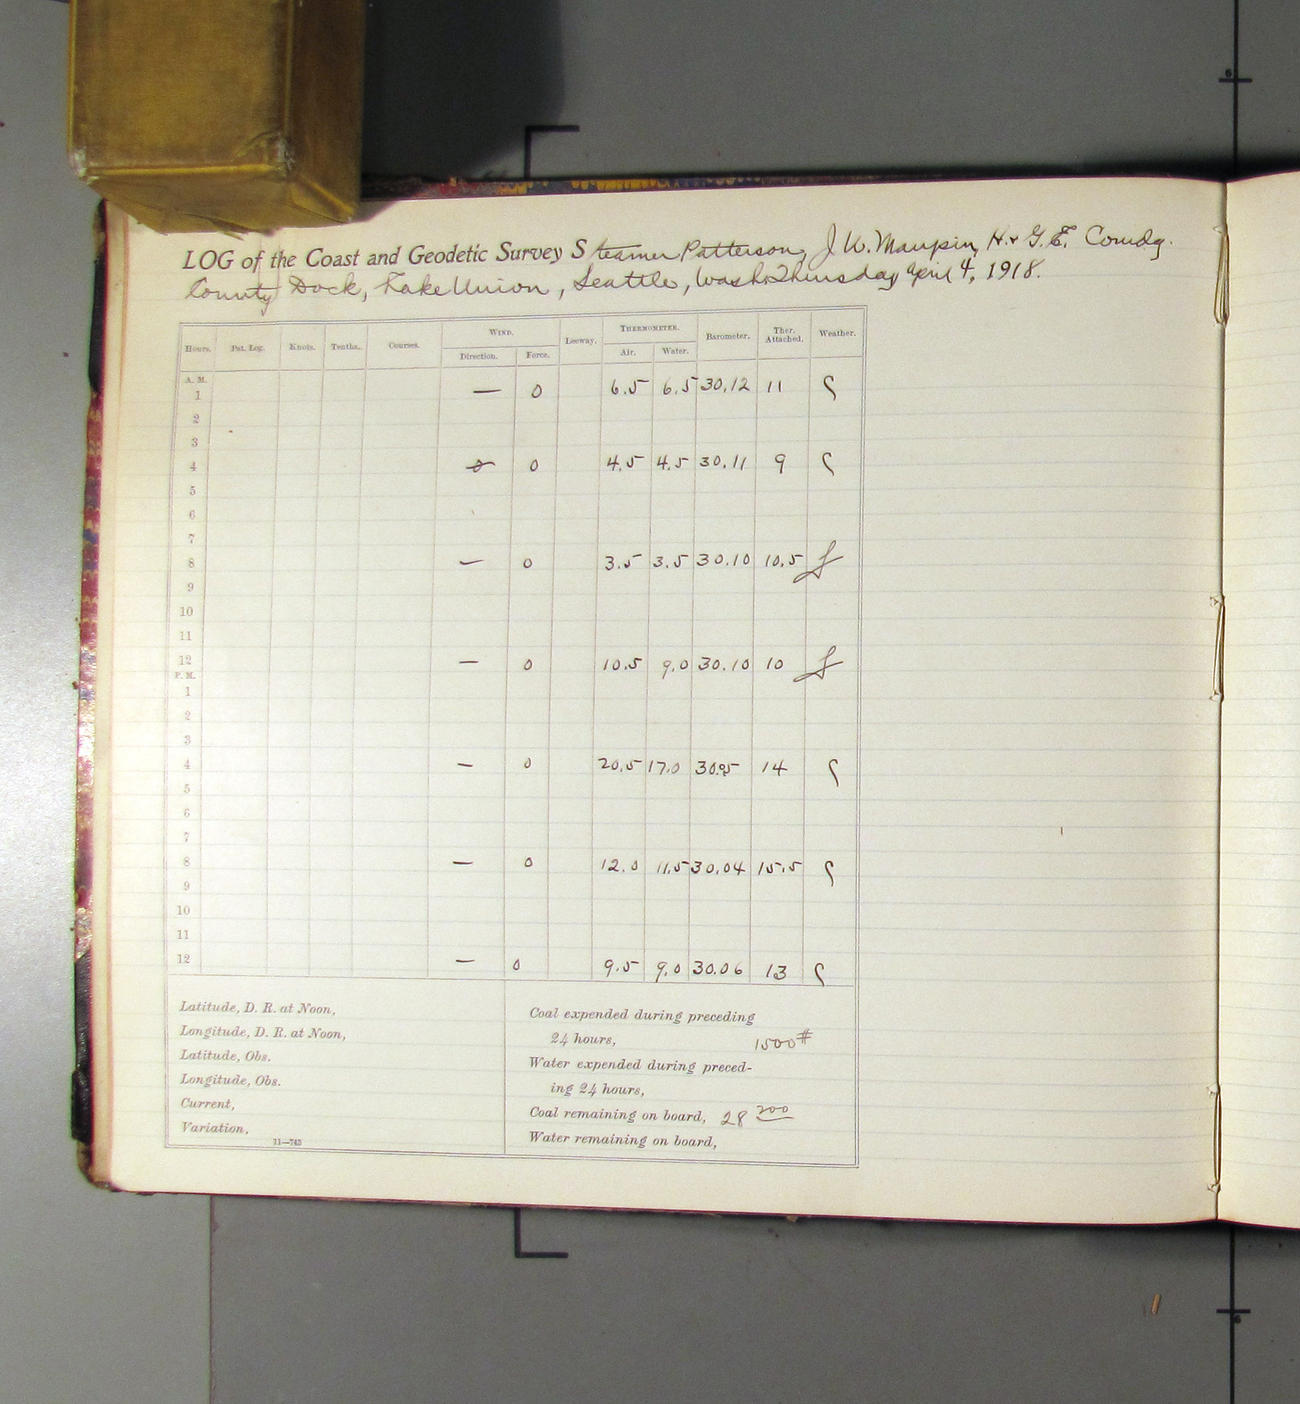 LOG of the Coast and Geodetic Survey Steamer Patterson, J. W. Maupin, H. & G. E. Comdg.
County Dock, Lake Union, Seattle, Wash. Thursday April 4, 1918.
WIND. THERMOMETER.
Hours. Pat. Log. Knots. Tenths. Courses. Direction. Force. Leeway. Air. Water. Barometer. Ther. Attached. Weather.
A. M.
1 — 0 6.5 6.5 30.12 11
2
3
4 0 4.5 4.5 30.11 9
5
6
7
8 — 0 3.5 3.5 30.10 10.5 f
9
10
11
12 — 0 10.5 9.0 30.10 10 f
P. M.
1
2
3
4 — 0 20.5 17.0 30.05 14
5
6
7
8 — 0 12.0 11.5 30.04 15.5
9
10
11
12 — 0 9.5 9.0 30.06 13
Latitude, D. R. at Noon,
Longitude, D. R. at Noon,
Latitude, Obs.
Longitude, Obs.
Current,
Variation,
11—743
Coal expended during preceding
24 hours, 1500#
Water expended during preced-
ing 24 hours,
Coal remaining on board, 28 200
Water remaining on board,